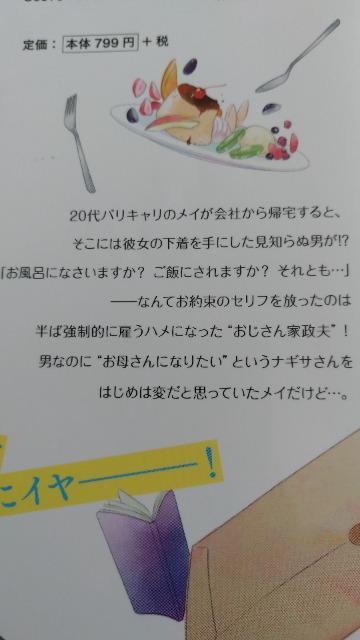 定価：本体 799 円 + 税
20代バリキャリのメイが会社から帰宅すると、
そこには彼女の下着を手にした見知らぬ男が!?
「お風呂になさいますか？ ご飯にされますか？ それとも…」
――なんてお約束のセリフを放ったのは
半ば強制的に雇うハメになった “おじさん家政夫” ！
男なのに “お母さんになりたい” というナギサさんを
はじめは変だと思っていたメイだけど…。
にイヤ―――！